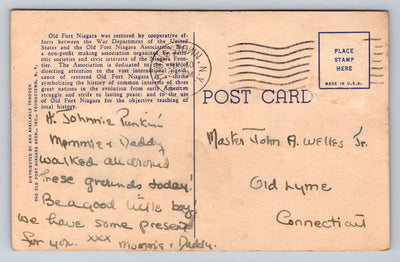 Old Fort Niagara was restored by cooperative ef-
forts between the War Department of the United
States and the Old Fort Niagara Association,
a non-profit making association organized by
otic societies and civic interests of the Niagara Fron-
tier. The Association is dedicated to
directing attention to the vast international signi-
icance of restored Old Fort Niagara as a shrine
symbolizing the history of common interests of three
great nations in the evolution from early American
struggle and strife to lasting peace; and to the use
of Old Fort Niagara for the objective teaching of
local history.
DISTRIBUTED BY AND AVAILABLE THROUGH
THE OLD FORT NIAGARA ASSN., INC., YOUNGSTOWN, N. Y.
N.Y.
PLACE
STAMP
HERE
MADE IN U.S.A.
POST CARD
Hi Johnnie Punkin'
Mommie & Daddy
walked all around
these grounds today!
Be a good little boy
we have some present
for you. xxx Mommie & Daddy.
Master John A. Welles Jr.
Old Lyme
Connecticut